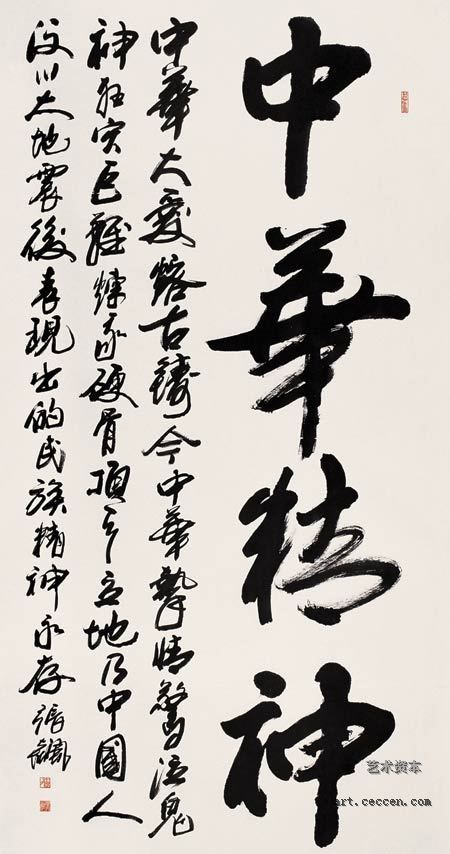 中華精神
中華大愛熔古鑄今中華摯情驚泣鬼
神狂灾巨難煉我硬骨頂天立地乃中國人
汶川大地震後表現出的民族精神永存張
艺术资本
art.ceccen.com